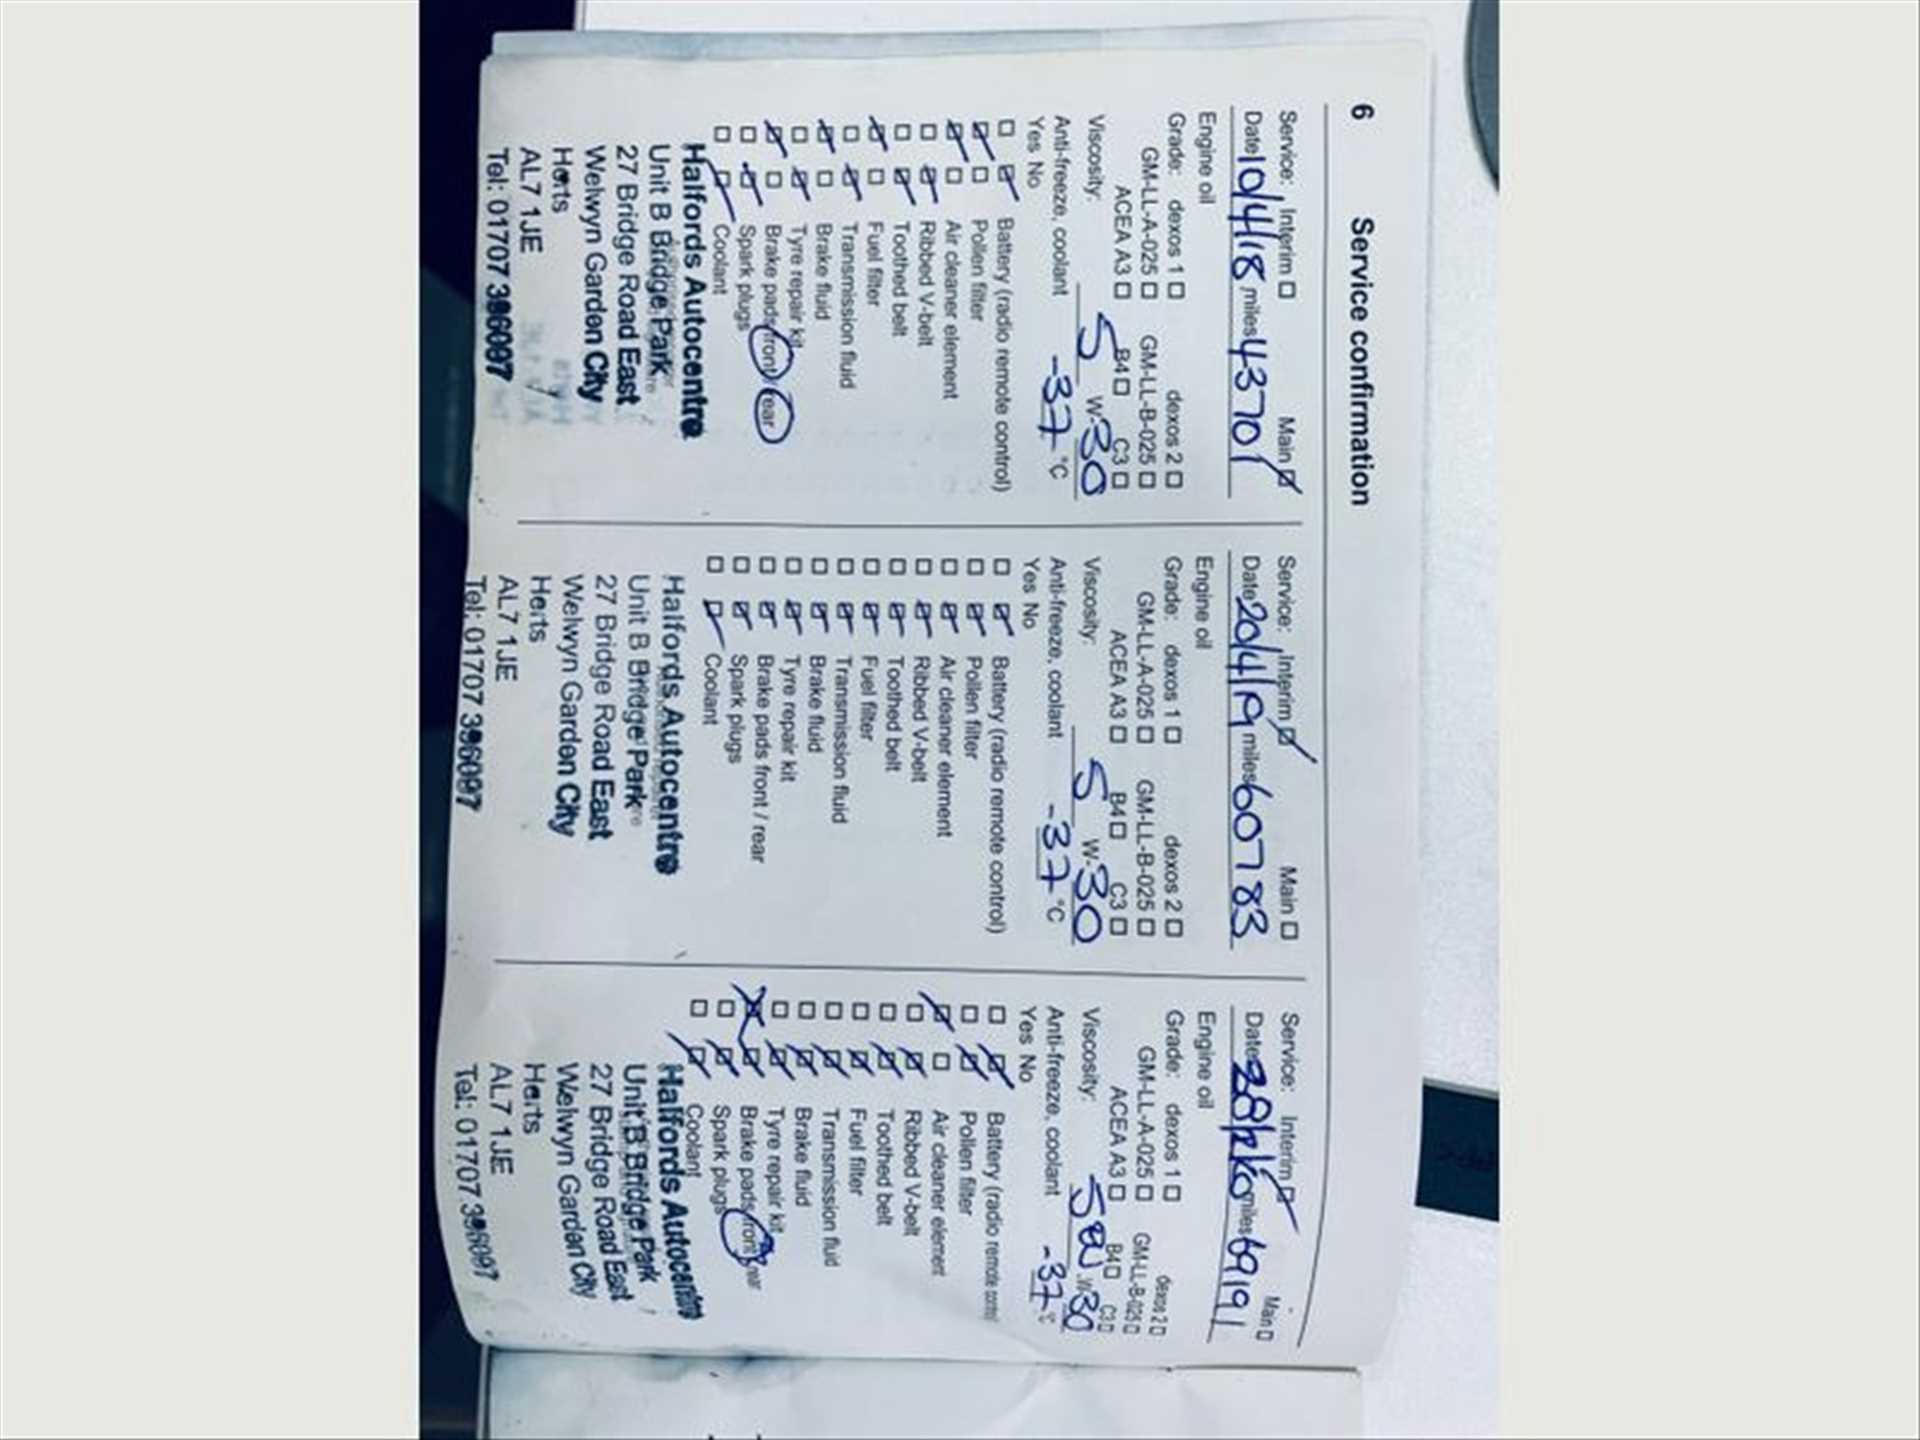 6 Service confirmation
Service: Interim ☐ Main ☑
Date 10/4/18 miles 43701
Engine oil
Grade: dexos 1 ☐ dexos 2 ☐
GM-LL-A-025 ☐ GM-LL-B-025 ☐
ACEA A3 ☐ B4 ☐ C3 ☐
Viscosity: 5 W-30
Anti-freeze, coolant -37 °C
Yes No
☐ ☑ Battery (radio remote control)
☑ ☐ Pollen filter
☑ ☐ Air cleaner element
☐ ☑ Ribbed V-belt
☐ ☑ Toothed belt
☑ ☐ Fuel filter
☐ ☑ Transmission fluid
☑ ☐ Brake fluid
☐ ☑ Tyre repair kit
☑ ☐ Brake pads front / rear
☐ ☑ Spark plugs
☐ ☑ Coolant
Halfords Autocentre
Unit B Bridge Park
27 Bridge Road East
Welwyn Garden City
Herts
AL7 1JE
Tel: 01707 396097
Service: Interim ☑ Main ☐
Date 20/4/19 miles 60783
Engine oil
Grade: dexos 1 ☐ dexos 2 ☐
GM-LL-A-025 ☐ GM-LL-B-025 ☐
ACEA A3 ☐ B4 ☐ C3 ☐
Viscosity: 5 W-30
Anti-freeze, coolant -37 °C
Yes No
☐ ☑ Battery (radio remote control)
☐ ☑ Pollen filter
☐ ☑ Air cleaner element
☐ ☑ Ribbed V-belt
☐ ☑ Toothed belt
☐ ☑ Fuel filter
☐ ☑ Transmission fluid
☐ ☑ Brake fluid
☐ ☑ Tyre repair kit
☐ ☑ Brake pads front / rear
☐ ☑ Spark plugs
☐ ☑ Coolant
Halfords Autocentre
Unit B Bridge Park
27 Bridge Road East
Welwyn Garden City
Herts
AL7 1JE
Tel: 01707 396097
Service: Interim ☑ Main ☐
Date miles 69191
Engine oil
Grade: dexos 1 ☐ dexos 2 ☐
GM-LL-A-025 ☐ GM-LL-B-025 ☐
ACEA A3 ☐ B4 ☐ C3 ☐
Viscosity: 5W W-30
Anti-freeze, coolant -37 °C
Yes No
☐ ☑ Battery (radio remote control)
☐ ☑ Pollen filter
☑ ☐ Air cleaner element
☐ ☑ Ribbed V-belt
☐ ☑ Toothed belt
☐ ☑ Fuel filter
☐ ☑ Transmission fluid
☐ ☑ Brake fluid
☐ ☑ Tyre repair kit
☒ ☑ Brake pads front / rear
☐ ☑ Spark plugs
☐ ☑ Coolant
Halfords Autocentre
Unit B Bridge Park
27 Bridge Road East
Welwyn Garden City
Herts
AL7 1JE
Tel: 01707 396097